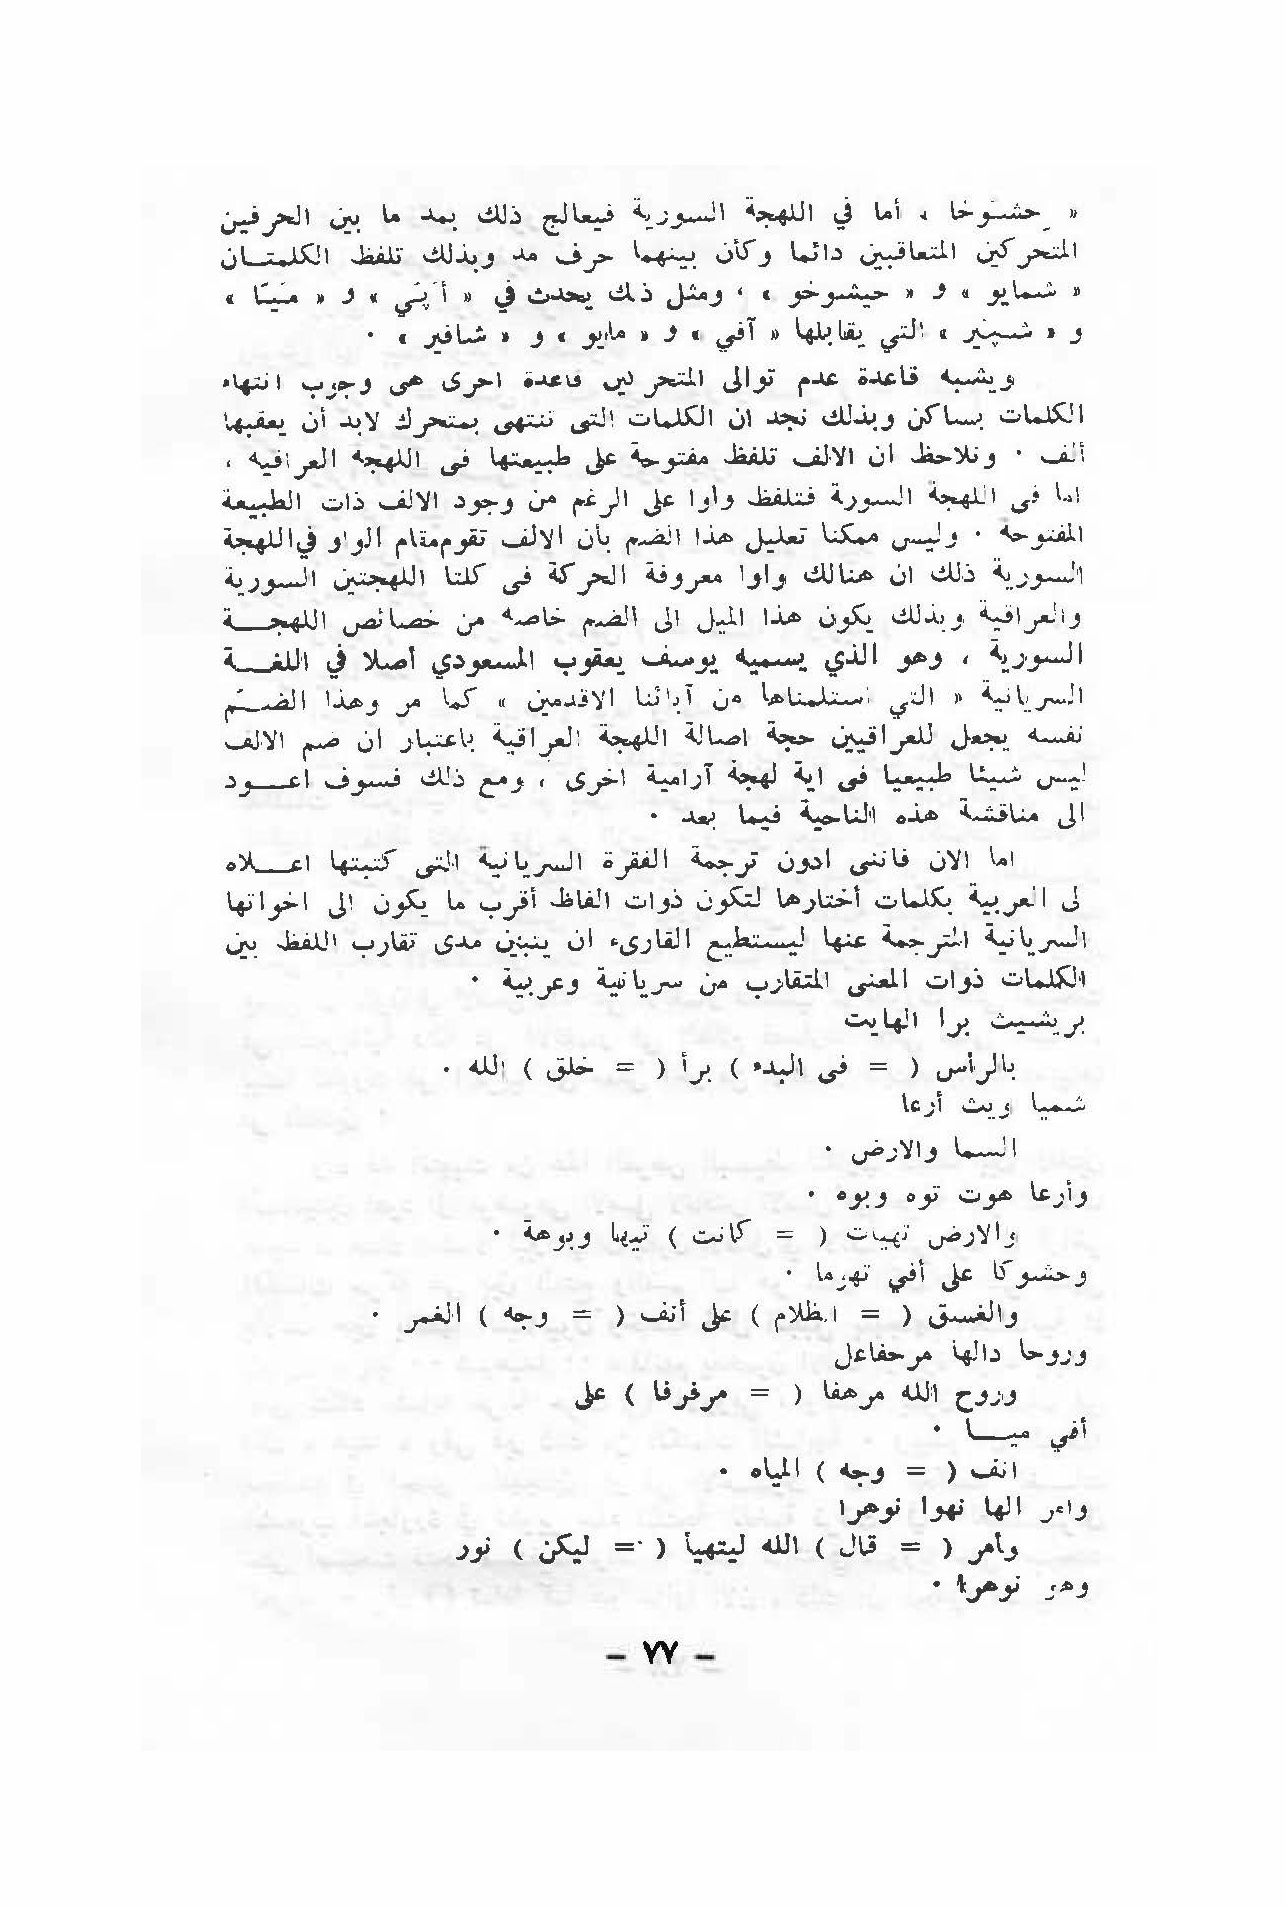 « حِشّوخا ، أما في اللهجة السورية فيعالج ذلك بمد ما بين الحرفين
المتحركين المتعاقبين دائما وكأن بينهما حرف مد وبذلك تلفظ الكلمتـان
« شمايو » و « حيشوخو » ، ومثل ذلك يحدث في « أَپَّي » و « مَيّا »
و « شپير » التي يقابلها « آفي » و « مايو » و « شافير » ·
ويشبه قاعدة عدم توالى المتحركين قاعدة اخرى هى وجوب انتهاء
الكلمات بساكن وبذلك نجد ان الكلمات التى تنتهى بمتحرك لابد أن يعقبها
ألف · ونلاحظ ان الالف تلفظ مفتوحة على طبيعتها فى اللهجة العراقية ،
اما فى اللهجة السورة فتلفظ واوا على الرغم من وجود الالف ذات الطبيعة
المفتوحة · وليس ممكنا تعليل هذا الضم بأن الالف تقوم مقام الواو في اللهجة
السورية ذلك ان هنالك واوا معروفة الحركة فى كلتا اللهجتين السورية
والعراقية وبذلك يكون هذا الميل الى الضم خاصه من خصائص اللهجـــة
السورية ، وهو الذي يسميه يوسف يعقوب المسعودي أصلا في اللغـــة
السريانية « التي استلمناها من آبائنا الاقدمين » كما مر وهذا الضـــم
نفسه يجعل للعراقيين حجة اصالة اللهجة العراقية باعتبار ان ضم الالف
ليس شيئا طبيعيا فى اية لهجة آرامية اخرى ، ومع ذلك فسوف اعـــود
الى مناقشة هذه الناحية فيما بعد ·
اما الان فاننى ادون ترجمة الفقرة السريانية التى كتبتها اعـــلاه
لى العربية بكلمات أختارها لتكون ذوات الفاظ أقرب ما يكون الى اخواتها
السريانية المترجمة عنها ليستطيع القارىء ان يتبين مدى تقارب اللفظ بين
الكلمات ذوات المعنى المتقارب من سريانية وعربية ·
بريشيث برا الهايت
بالرأس ( = فى البدء ) برأ ( = خلق ) الله ·
شميا ويث أرعا
السما والارض ·
وأرعا هوت توه وبوه ·
والارض تهيات ( = كانت ) تيها وبوهة ·
وحشوكا على أفي تهوما ·
والغسق ( = الظلام ) على أنف ( = وجه ) الغمر ·
وروحا دالها مرحفاعل
وروح الله مرهفا ( = مرفرفا ) على
أفي ميـــا ·
انف ( = وجه ) المياه ·
وامر الها نهوا نوهرا
وأمر ( = قال ) الله ليتهيأ ( = ليكن ) نور
وهو نوهرا ·
— ٧٧ —